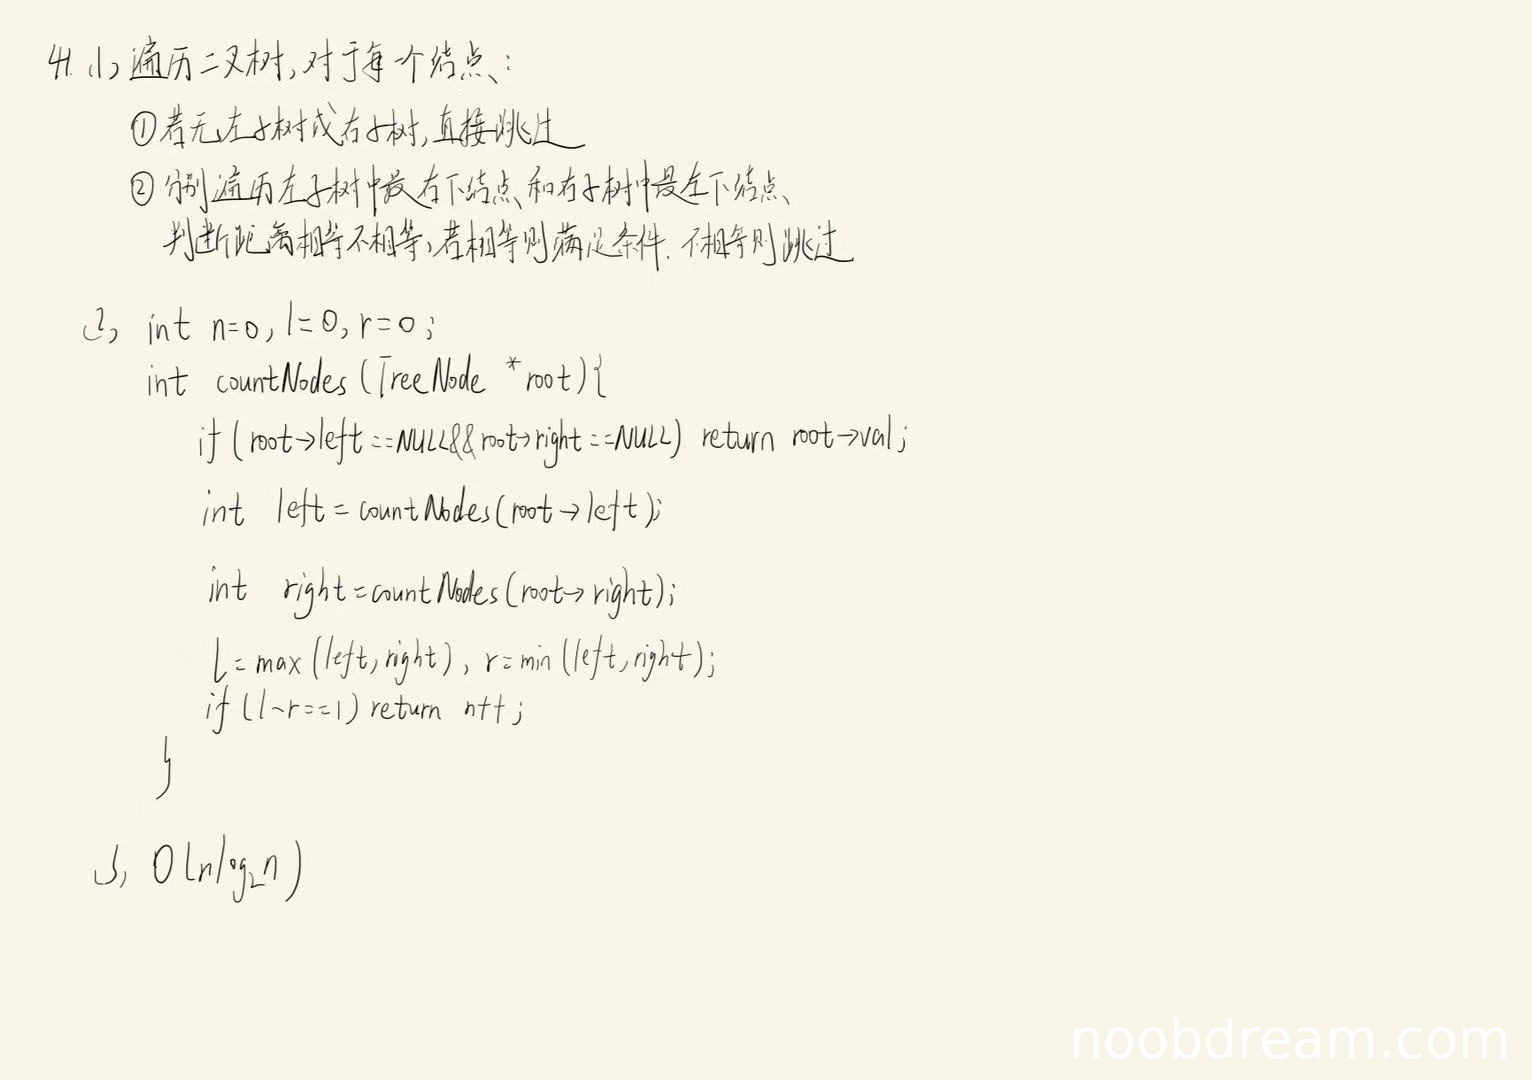 41. (1) 遍历二叉树,对于每个结点:
① 若无左子树或右子树,直接跳过
② 分别遍历左子树中最右下结点和右子树中最左下结点、
判断距离相等不相等,若相等则满足条件.不相等则跳过
(2) int n=0, l=0, r=0;
int countNodes (TreeNode *root){
if (root->left ==NULL&&root->right ==NULL) return root->val;
int left = countNodes(root->left);
int right = countNodes(root->right);
l=max(left,right), r=min(left,right);
if (l-r==1) return n++;
}
(3) O(nlog₂n)
noobdream.com